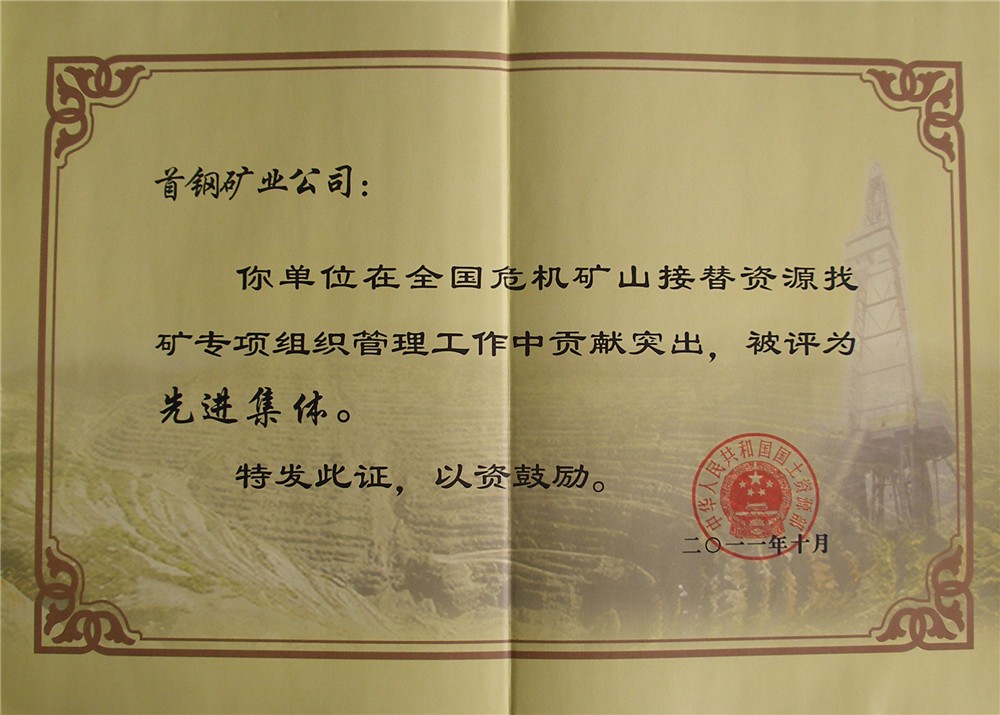 首钢矿业公司：
你单位在全国危机矿山接替资源找
矿专项组织管理工作中贡献突出，被评为
先进集体。
特发此证，以资鼓励。
中华人民共和国国土资源部
二〇一一年十月